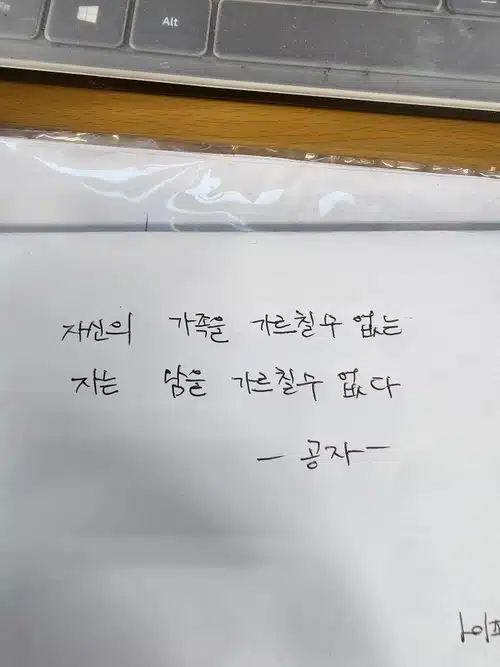 Alt
자신의 가족을 가르칠수 없는
자는 남을 가르칠수 없다
- 공자 -